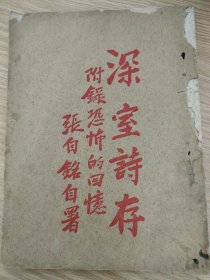 深室詩存
附錄恐怖的回憶
張自銘自署